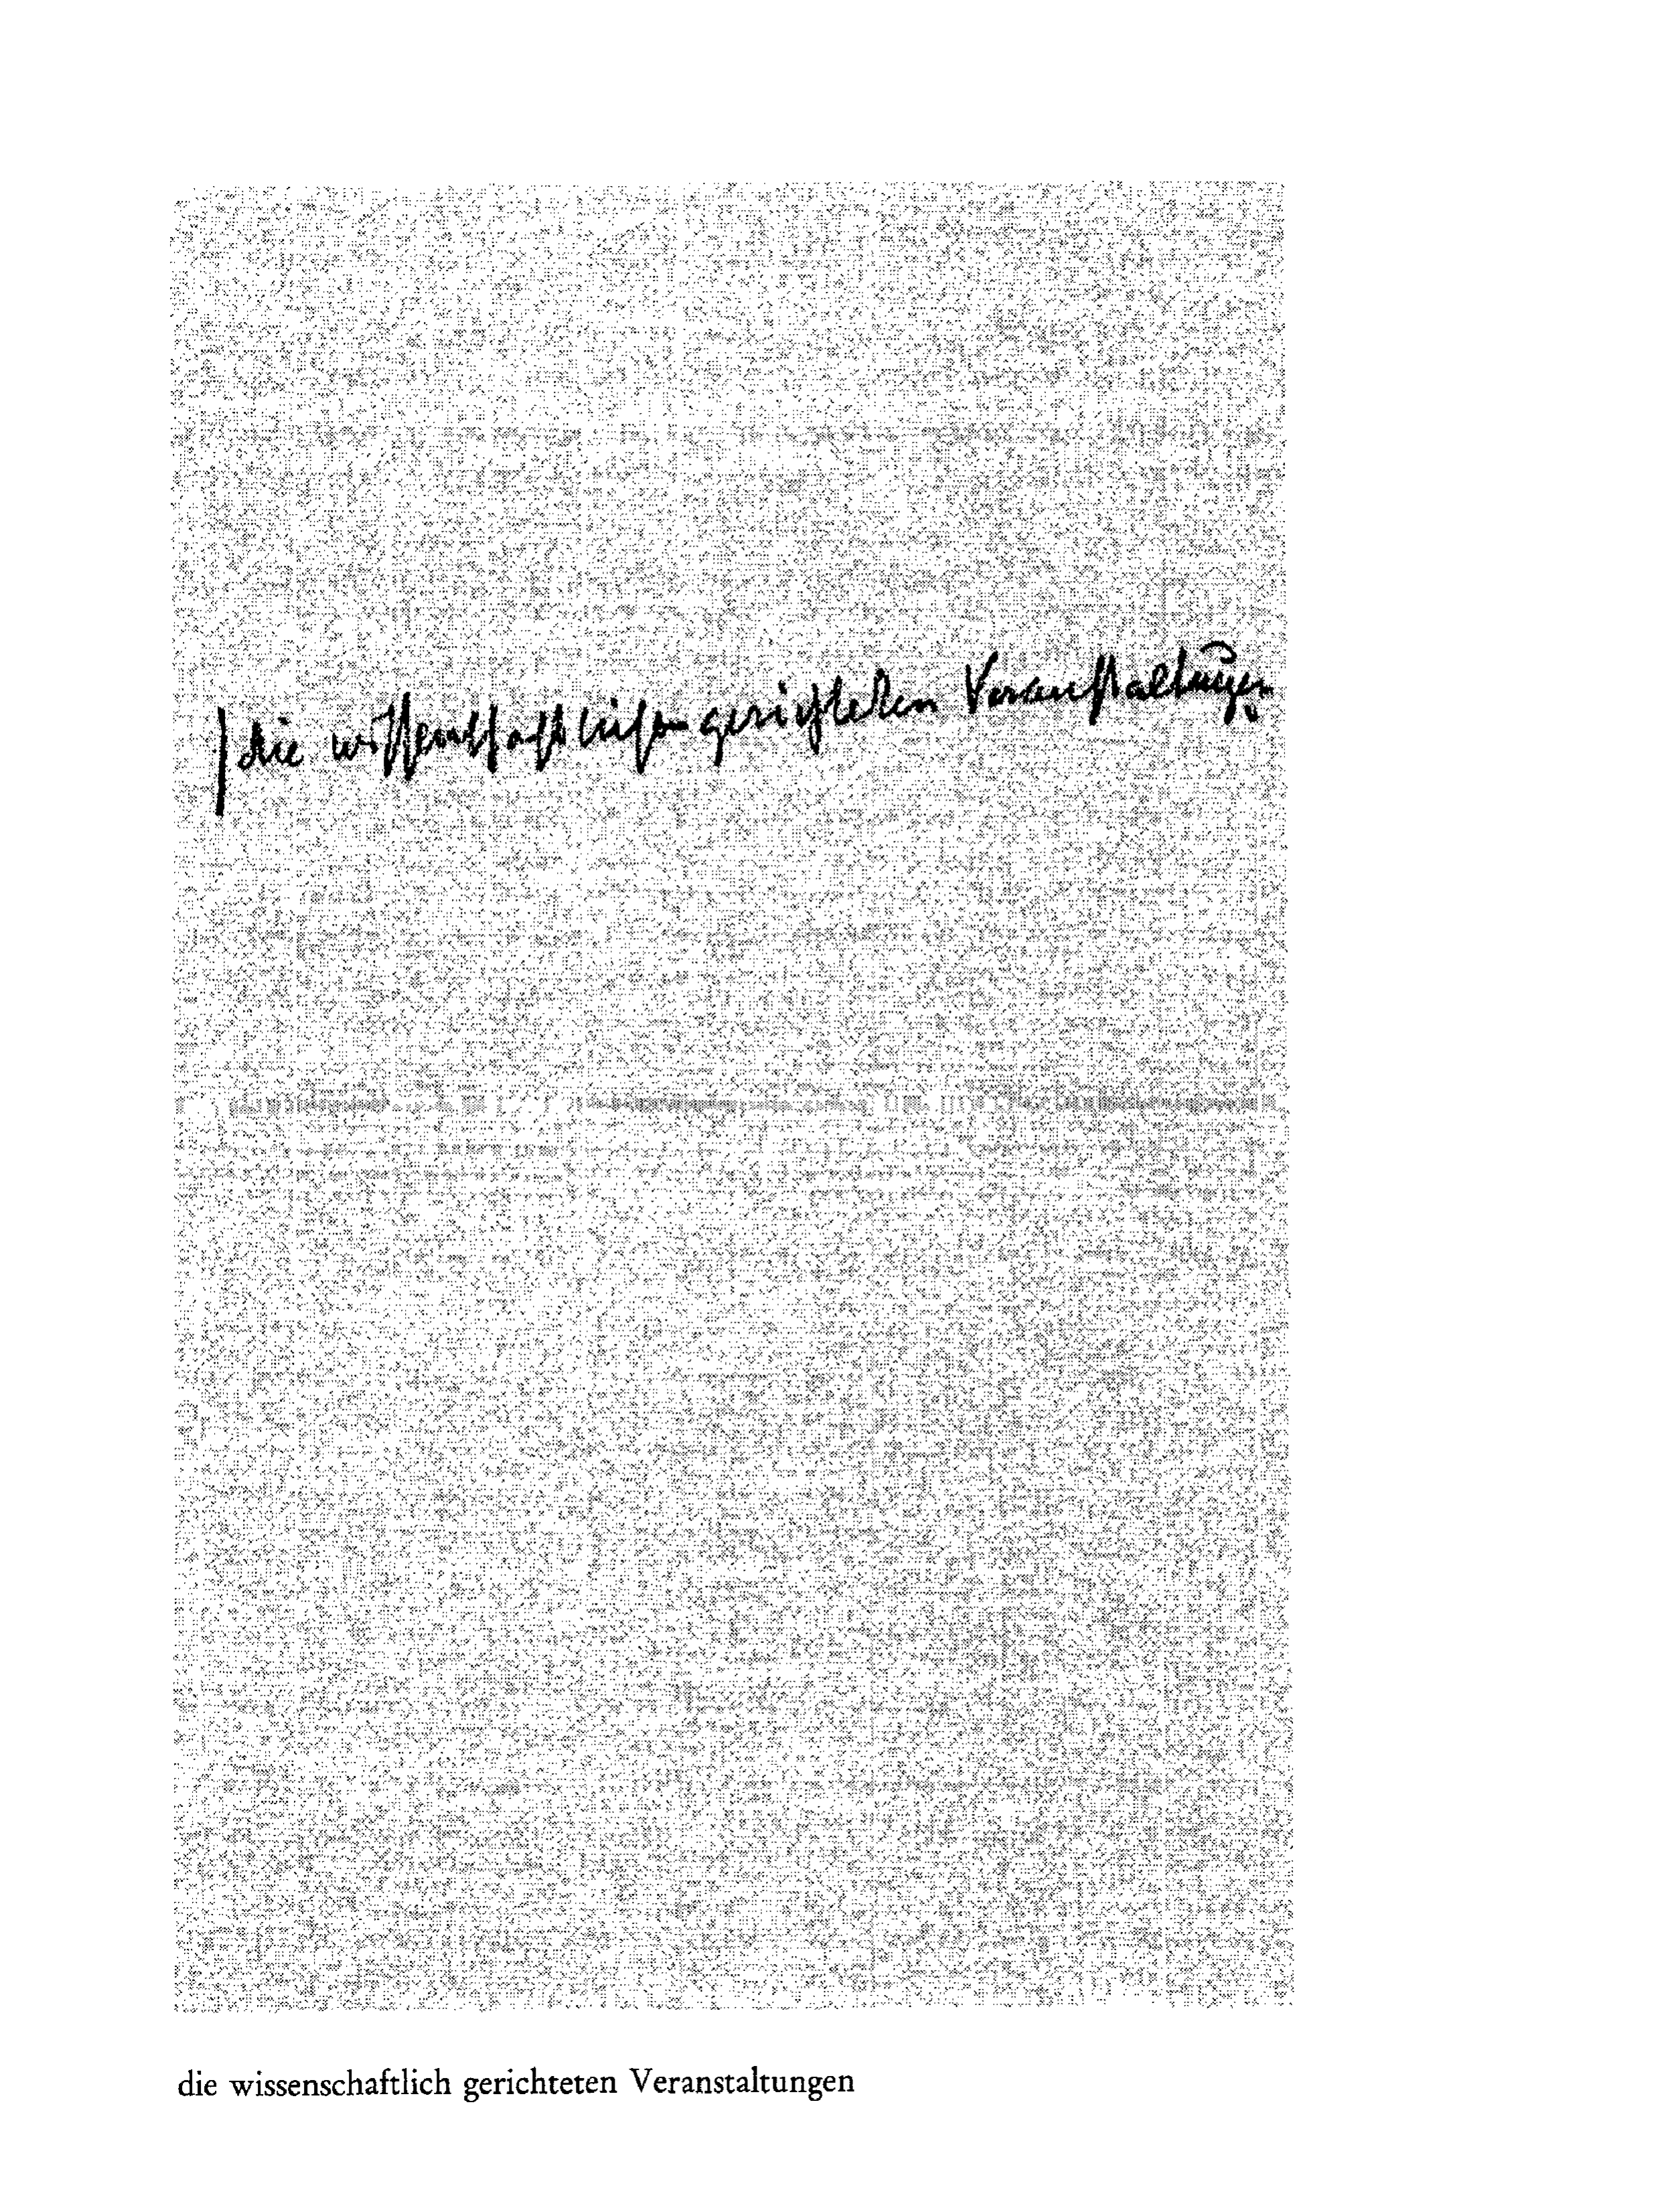 die wissenschaftlichen gerichteten Veranstaltungen
die wissenschaftlich gerichteten Veranstaltungen